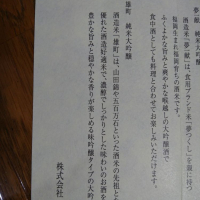 夢一献 純米大吟醸
酒造米「夢一献」は、食用ブランド米「夢つくし」を親に持つ
福岡生まれ福岡育ちの酒米です。
ふくよかな旨みと爽やかな喉越しの大吟醸酒で
食中酒としても料理と合わせてお楽しみいただけます。
雄町 純米大吟醸
酒造米「雄町」は、山田錦や五百万石といった酒米の先祖と
優れた酒造好適米で、濃醇でしっかりとした味わいのお酒を
豊かな旨みと穏やかな香りが楽しめる味吟醸タイプの大吟
株式会社